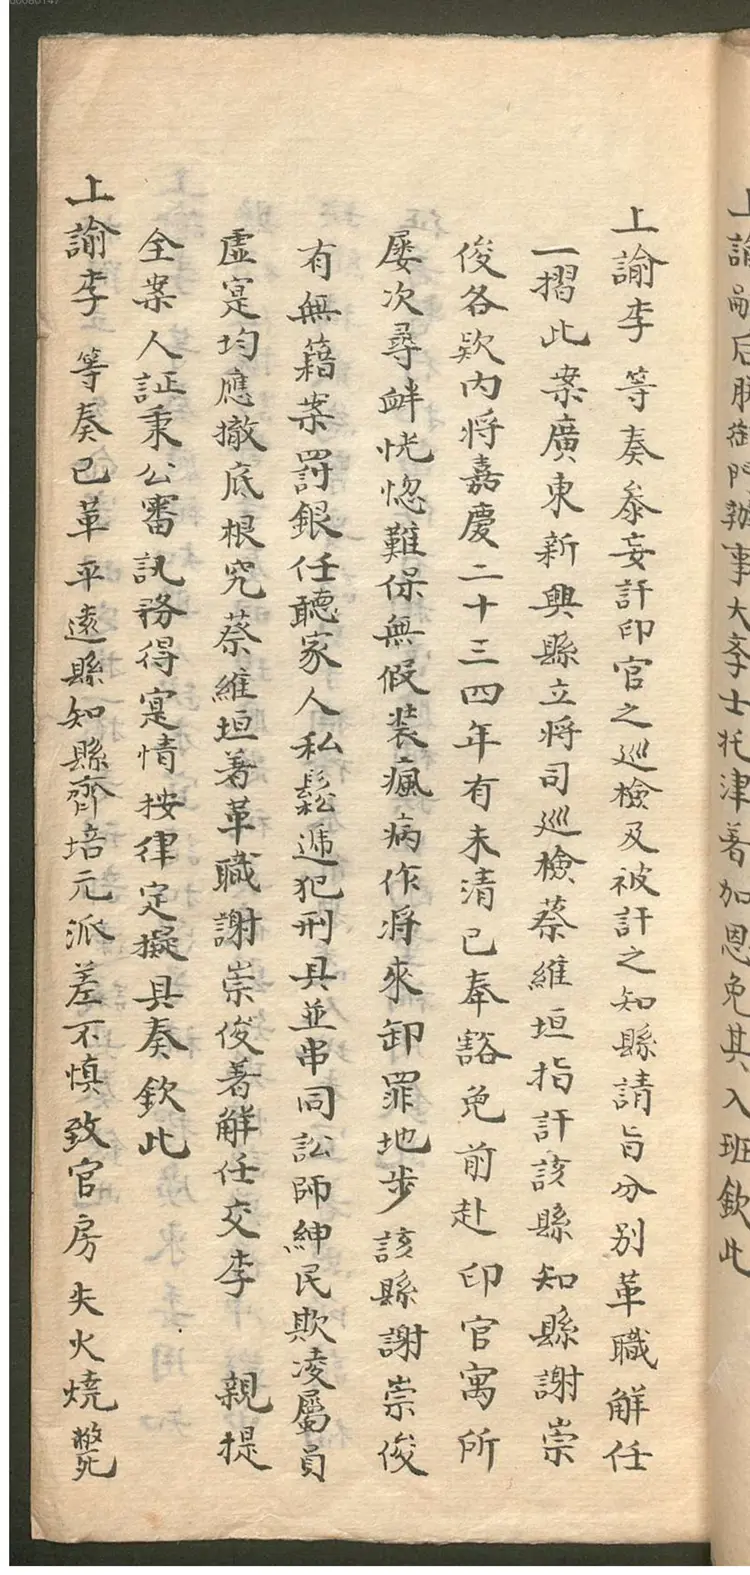 上諭嗣后朕御門辦事大學士托津著加恩免其入班欽此
上諭李 等奏叅妄訐印官之巡檢及被訐之知縣請旨分别革職解任
一摺此案廣東新興縣立將司巡檢蔡維垣指訐該縣知縣謝崇
俊各欵內將嘉慶二十三四年有未清已奉豁免前赴印官寓所
屡次尋衅恍惚難保無假装瘋病作將來卸罪地步該縣謝崇俊
有無籍案罸銀任聽家人私鬆逓犯刑具並串同訟師紳民欺凌屬員
虛寔均應撤底根究蔡維垣著革職謝崇俊著解任交李 親提
全案人証秉公審訊務得寔情按律定擬具奏欽此
上諭李 等奏已革平遠縣知縣齊培元派差不慎致官房失火燒斃